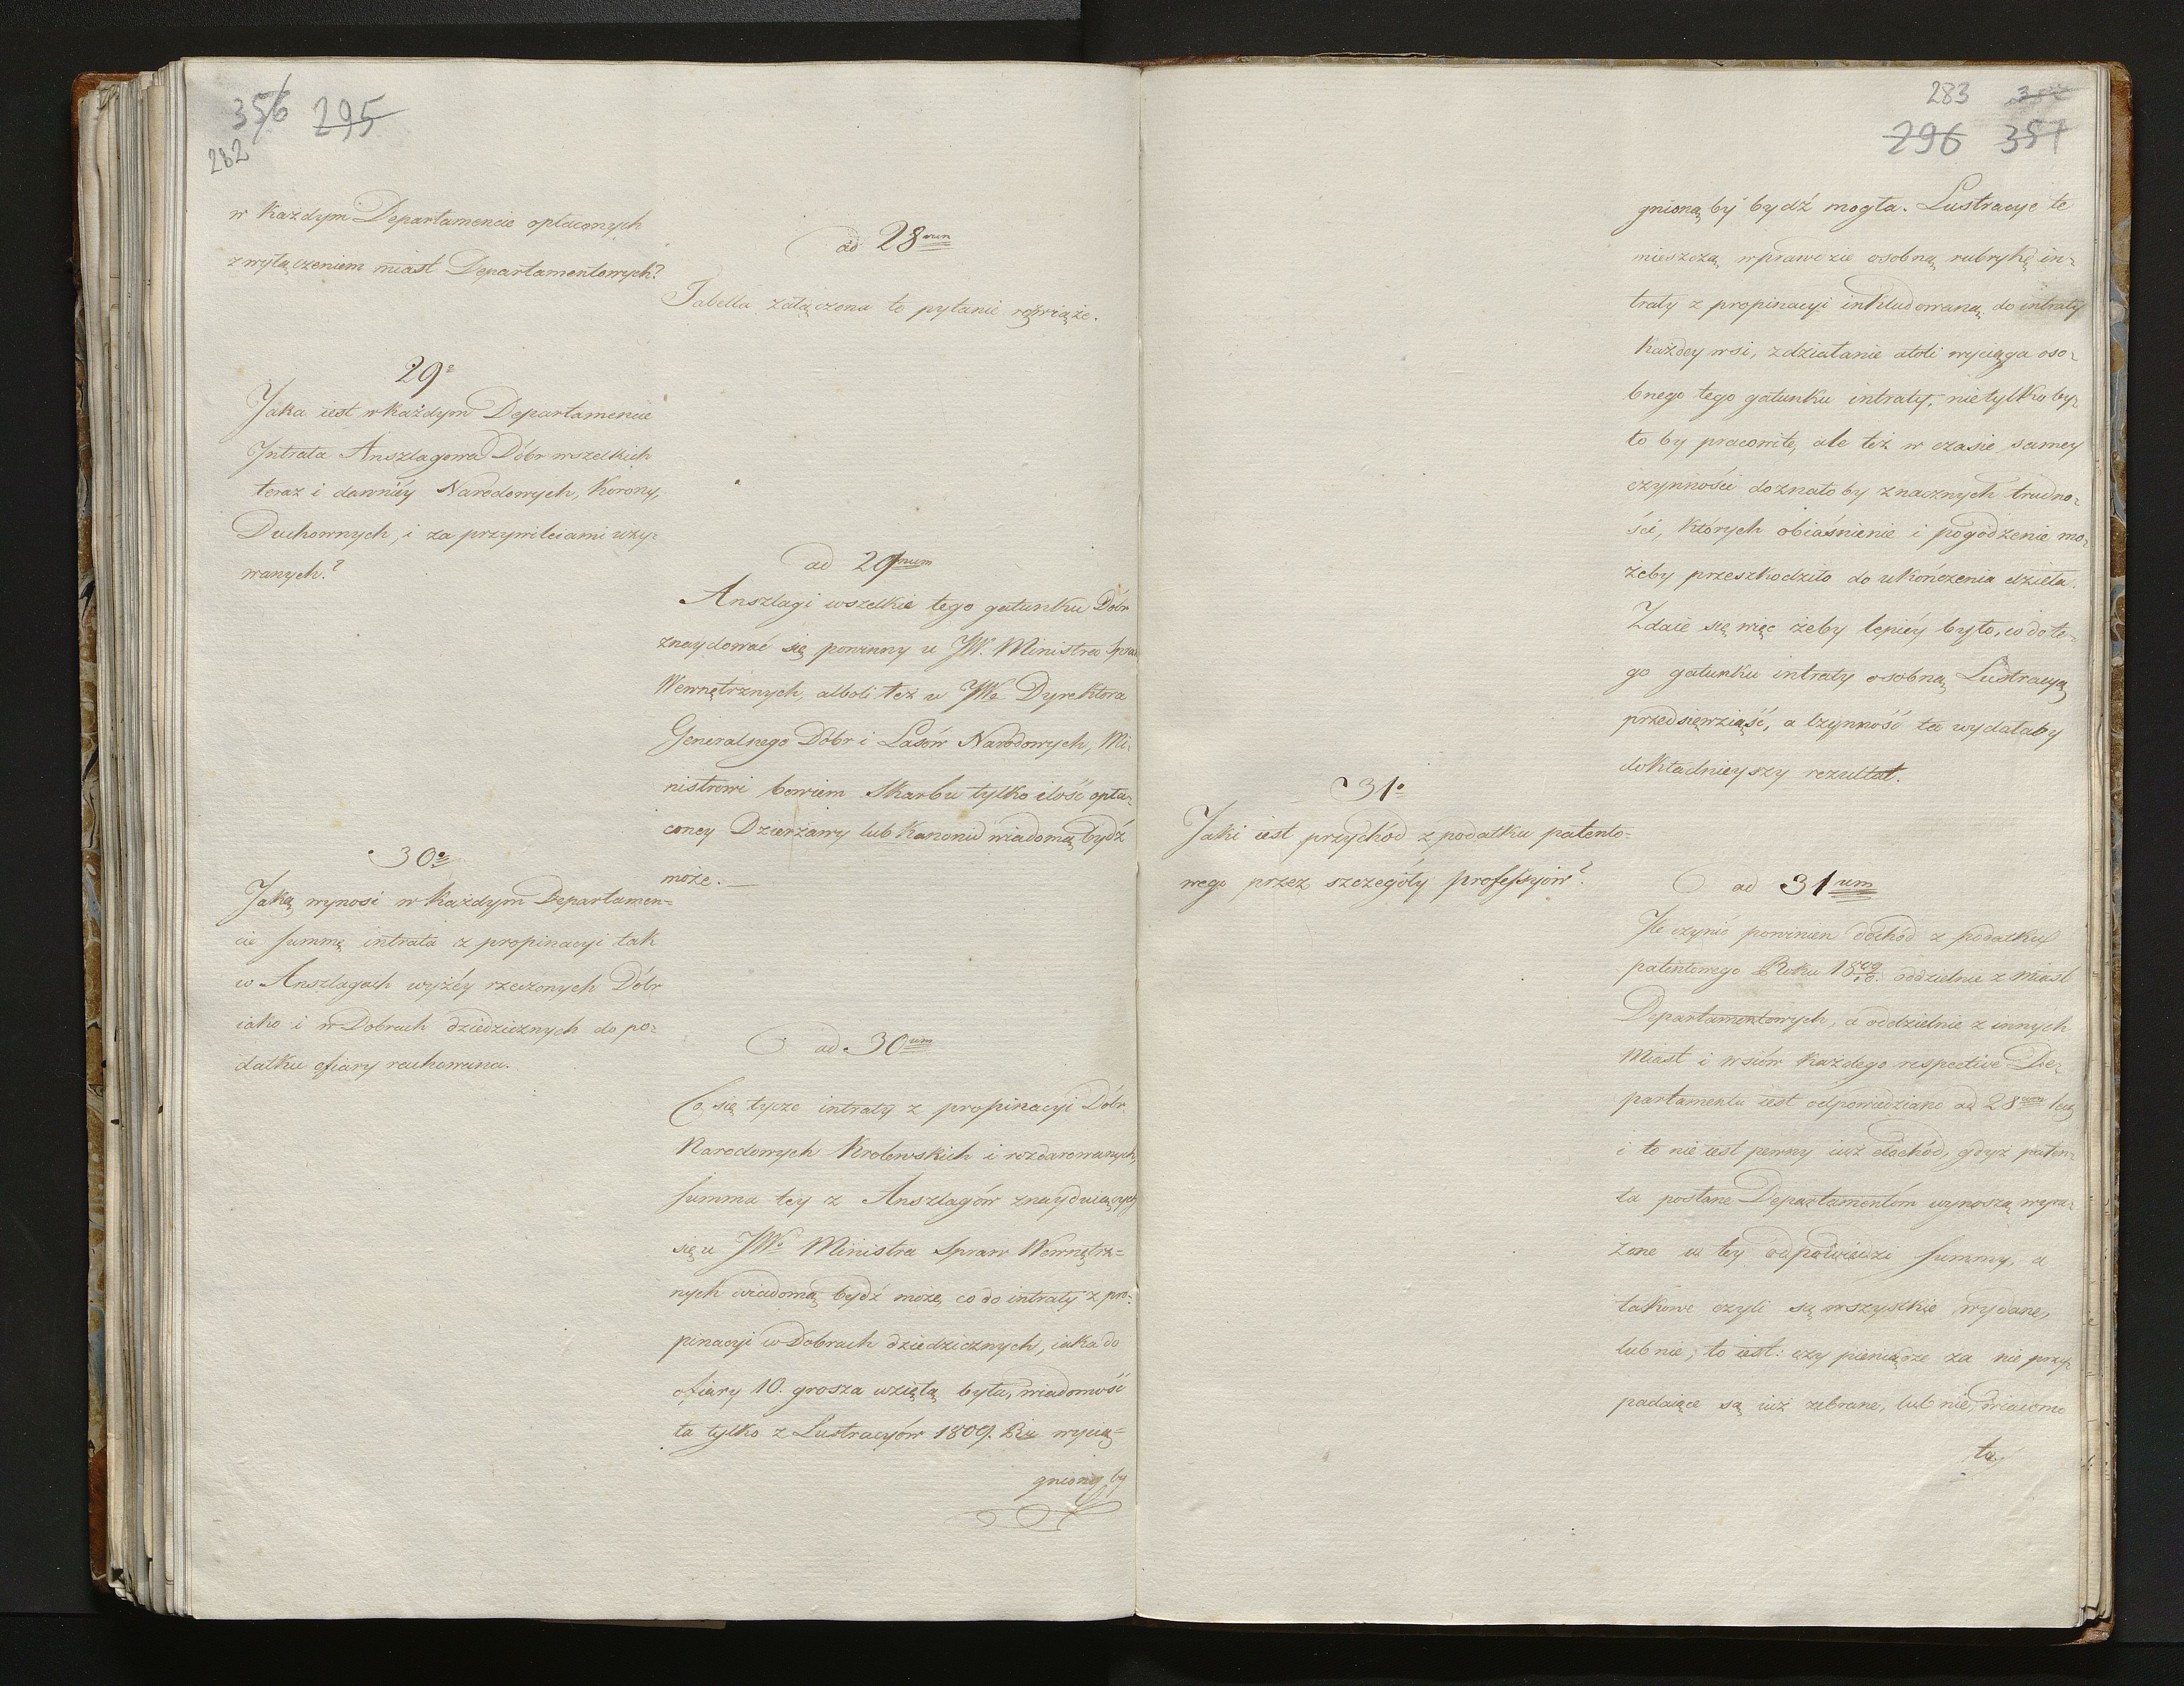 356 295
282
w każdym Departamencie opłaconych
z wyłączeniem miast Departamentowych?
ad 28um
Tabella załączona to pytanie rozwiąże.
29o
Jaka iest w każdym Departamencie
Intrata Anszlagowa Dóbr wszelkich
teraz i dawniéy Narodowych, Korony,
Duchownych, i za przywileiami uży-
wanych?
ad 29num
Anszlagi wszelkie tego gatunku Dóbr
znaydować się powinny u JW. Ministra Spraw
Wewnętrznych, alboli też u JWo Dyrektora
Generalnego Dóbr i Lasów Narodowych, Mi-
nistrowi bowiem Skarbu tylko ilość opła-
coney Dzierżawy lub Kanonu wiadomą bydź
może.—
30o
Jaką wynosi w każdym Departamen-
cie summę intrata z propinacyi tak
w Anszlagach wyżéy rzeczonych Dóbr
iako i w Dobrach dziedzicznych do po-
datku ofiary rachowana.
ad 30um
Co się tycze intraty z propinacyi Dóbr
Narodowych Krolewskich i rozdarowanych,
summa tey z Anszlagów znayduiących
się u JWo Ministra Spraw Wewnętrz-
nych wiadomą bydź może, co do intraty z pro-
pinacyi w Dobrach dziedzicznych, iaka do
ofiary 10. grosza wziętą była, wiadomość
ta tylko z Lustracyów 1809. Ru wycią-
gnioną by
283
296 357
gnioną by bydź mogła. Lustracye te
mieszczą wprawdzie osobną rubrykę in-
traty z propinacyi inkludowaną do intraty
każdey wsi, zdziałanie atoli wyciąga oso-
bnego tego gatunku intraty, nietylko by-
ło by pracowite, ale też w czasie samey
czynności doznało by znacznych trudno-
ści, których obiaśnienie i pogodzenie mo-
żeby przeszkodziło do ukończenia dzieła.
Zdaie się więc żeby lepiéy było, co do te-
go gatunku intraty osobną Lustracyą
przedsięwziąść, a czynność ta wydałaby
dokładnieyszy rezultat.
31o
Jaki iest przychód z podatku patento-
wego przez szczegóły professyów?
ad 31um
Ile czynić powinien dochód z podatku
patentowego Roku 1809/10. oddzielnie z miast
Departamentowych, a oddzielnie z innych
Miast i wsiów każdego respective De-
partamentu iest odpowiedziano ad 28um lecz
i to nie iest pewny iuż dochód, gdyż paten-
ta posłane Departamentóm wynoszą wyra-
żone w tey odpowiedzi summy, a
takowe czyli są wszystkie wydane,
lub nie, to iest: czy pieniądze za nie przy-
padaiące są iuż zebrane, lub nie, wiadomo
ta